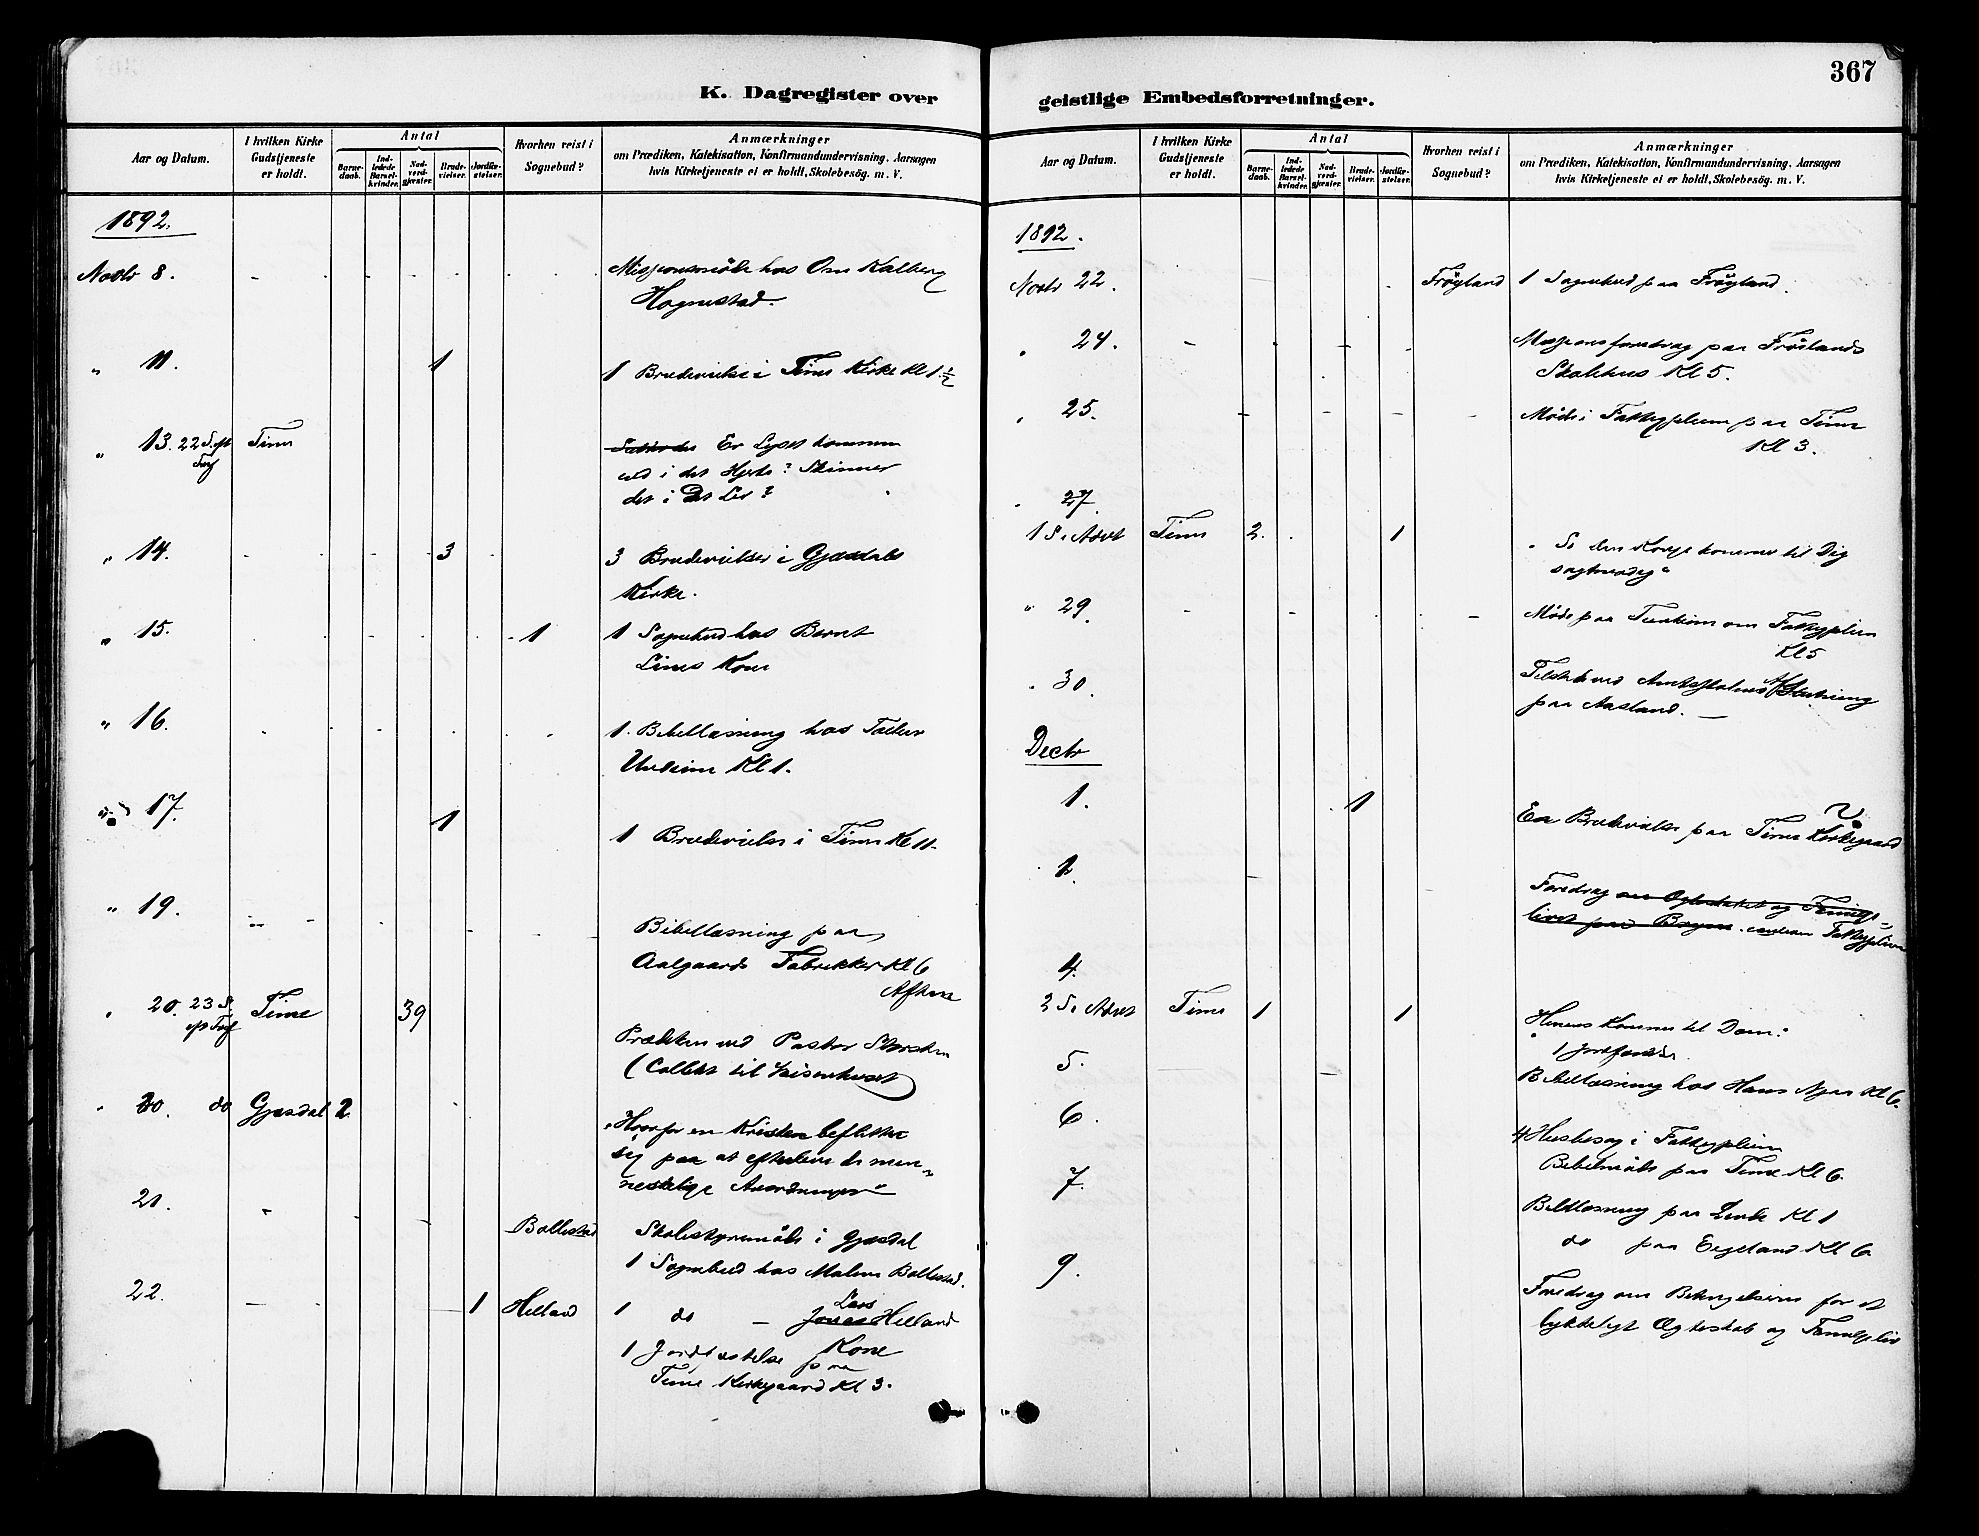 367
K. Dagregister over
Aar og Datum.
I hvilken Kirke Gudstjeneste er holdt.
Antal
Barne-daab.
Ind-ledede Barsel-kvinder.
Nad-verd-gjæster.
Brude-vielser.
Jordfæ-stelser.
Hvorhen reist i Sognebud?
Anmærkninger
om Prædiken, Katekisation, Konfirmandundervisning, Aarsagen
hvis Kirketjeneste ei er holdt, Skolebesög. m. V.
1892.
Novbr 8.
Missionsmöde hos Om Kalberg
Hognestad.
" 11. 1 1 Brudevielse i Time Kirke Kl 1 ½
" 13. 22 S. eft Time
Er Lyset kommen
ind i det Hjerte? Skinner
det i Dit Liv?
" 14. 3 3 Brudevielser i Gjæsdals
Kirke.
" 15. 1 1 Sognebud hos Bernt
Lines Kone
" 16. 1. Bibellæsning hos
Undeim Kl 1.
17. 1 1 Brudevielse i Time Kl 11.
" 19. Bibellæsning paa
Aalgaards Fabrikker Kl 6
Aften
" 20. 23 S. Time 39
eft Tref
Prædiken ved Pastor
(Collekt til Waisenhuset)
" 20. do Gjesdal 2
"Hvorfor en Kristen beflitter
sig paa at efterleve de men-
neskelige Anordninger"
21. Bollestad Skolestyremöde i Gjesdal
1 Sognebud hos Malene Bollestad.
22. 1 Helland 1 do — Jonas Helland
Lars
Kone
1 Jordfæstelse paa
Time Kirkegaard Kl 3.
geistlige Embedsforretninger.
Aar og Datum.
I hvilken Kirke Gudstjeneste er holdt.
Antal
Barne-daab.
Ind-ledede Barsel-kvinder.
Nad-verd-gjæster.
Brude-vielser.
Jordfæ-stelser.
Hvorhen reist i Sognebud?
Anmærkninger
om Prædiken, Katekisation, Konfirmandundervisning, Aarsagen
hvis Kirketjeneste ei er holdt, Skolebesög. m. V.
1892.
Novbr 22. Fröyland 1 Sognebud paa Fröyland.
" 24. Missionsforedrag paa Fröilands
Skolehus Kl 5.
" 25. Möde i Fattigpleien paa Time
Kl 3.
" 27.
1 S. i Advt Time 2. 1
"Se din Konge kommer til Dig
sagtmodig"
" 29. Möde paa Tunheim om Fattigpleien
Kl 5
" 30. Tilstede ved Amtsskolens Afslutning
paa Aasland.
Decbr
1. 1 En Brudevielse paa Time Kirkegaard
2. Foredrag om Ægteskabet og Familie-
livet paa Bryne. Fattigpleien
4.
2 S. i Advt Time 1 1
Herren Kommer til Dom."
1 Jordfæstelse.
5. Bibellæsning hos Hans Njaa Kl 6.
6. 4 Husbesög i Fattigpleien
Bibelmöde paa Time Kl 6.
7. Bibellæsning paa Lende Kl 1
do paa Eigeland Kl 6
9. Foredrag om Betingelserne for et
lykkeligt Ægteskab og Familieliv